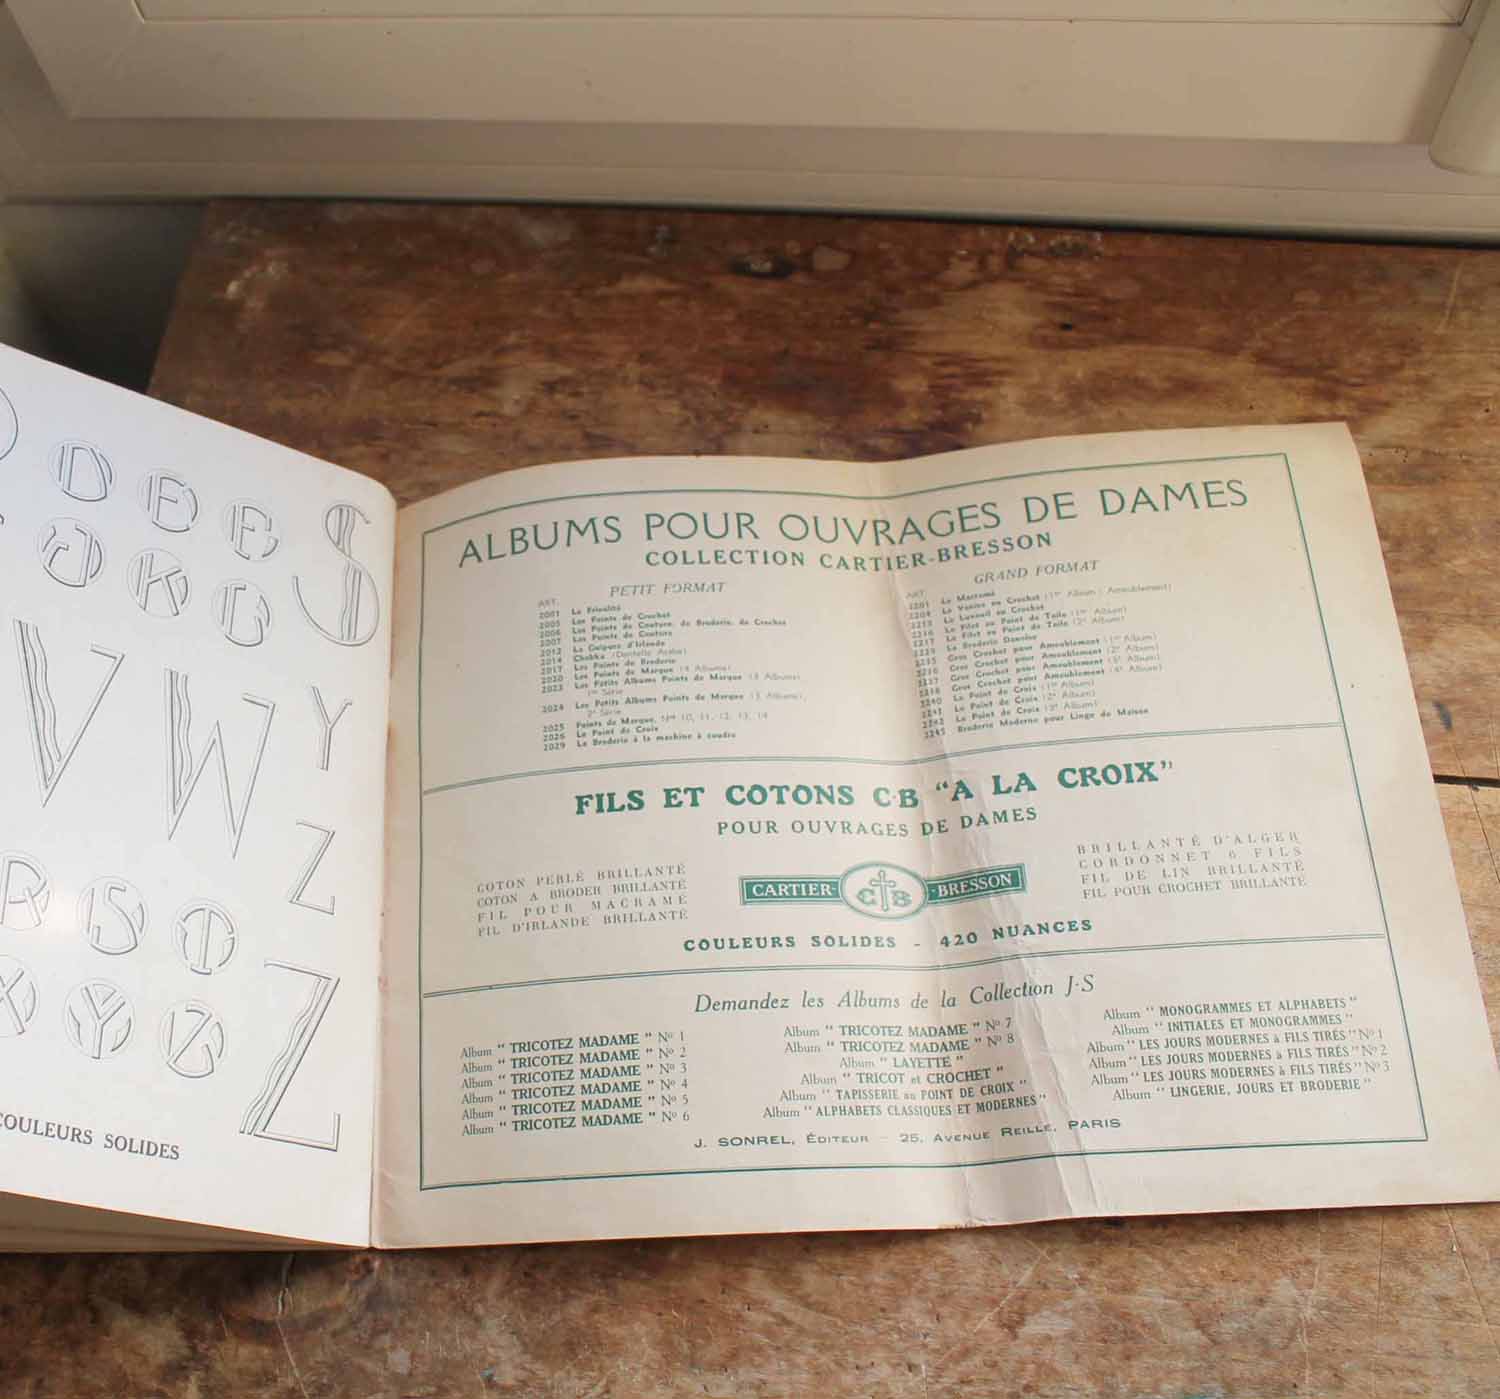 D E F S
J K G
V W Y
Z
R S T
X Y Z Z
COULEURS SOLIDES
ALBUMS POUR OUVRAGES DE DAMES
COLLECTION CARTIER-BRESSON
PETIT FORMAT
ART.
2001 La Frivolité
2005 Les Points de Crochet
2006 Les Points de Couture, de Broderie, de Crochet
2007 Les Points de Couture
2012 La Guipure d'Irlande
2014 Chebka (Dentelle Arabe)
2017 Les Points de Broderie
2020 Les Points de Marque (4 Albums)
2023 Les Petits Albums Points de Marque (3 Albums),
1re Série
2024 Les Petits Albums Points de Marque (3 Albums),
2e Série
2025 Points de Marque, Nos 10, 11, 12, 13, 14
2026 Le Point de Croix
2029 La Broderie à la machine à coudre
GRAND FORMAT
ART.
Le Macramé
Le Venise au Crochet (1er Album : Ameublement)
Le Luxeuil au Crochet
Le Filet au Point de Toile (1er Album)
Le Filet au Point de Toile (2e Album)
La Broderie Danoise
Gros Crochet pour Ameublement (1er Album)
Gros Crochet pour Ameublement (2e Album)
Gros Crochet pour Ameublement (3e Album)
Gros Crochet pour Ameublement (4e Album)
2240 Le Point de Croix (1er Album)
2241 Le Point de Croix (2e Album)
2242 Le Point de Croix (3e Album)
2245 Broderie Moderne pour Linge de Maison
FILS ET COTONS C·B "A LA CROIX"
POUR OUVRAGES DE DAMES
COTON PERLÉ BRILLANTÉ
COTON A BRODER BRILLANTÉ
FIL POUR MACRAMÉ
FIL D'IRLANDE BRILLANTÉ
CARTIER- C B -BRESSON
BRILLANTÉ D'ALGER
CORDONNET 6 FILS
FIL DE LIN BRILLANTÉ
FIL POUR CROCHET BRILLANTÉ
COULEURS SOLIDES - 420 NUANCES
Demandez les Albums de la Collection J-S
Album " TRICOTEZ MADAME " No 1
Album " TRICOTEZ MADAME " No 2
Album " TRICOTEZ MADAME " No 3
Album " TRICOTEZ MADAME " No 4
Album " TRICOTEZ MADAME " No 5
Album " TRICOTEZ MADAME " No 6
Album " TRICOTEZ MADAME " No 7
Album " TRICOTEZ MADAME " No 8
Album " LAYETTE "
Album " TRICOT et CROCHET "
Album " TAPISSERIE au POINT DE CROIX "
Album " ALPHABETS CLASSIQUES ET MODERNES "
Album " MONOGRAMMES ET ALPHABETS "
Album " INITIALES ET MONOGRAMMES "
Album " LES JOURS MODERNES à FILS TIRÉS " No 1
Album " LES JOURS MODERNES à FILS TIRÉS " No 2
Album " LES JOURS MODERNES à FILS TIRÉS " No 3
Album " LINGERIE, JOURS ET BRODERIE "
J. SONREL, ÉDITEUR - 25, AVENUE REILLE, PARIS